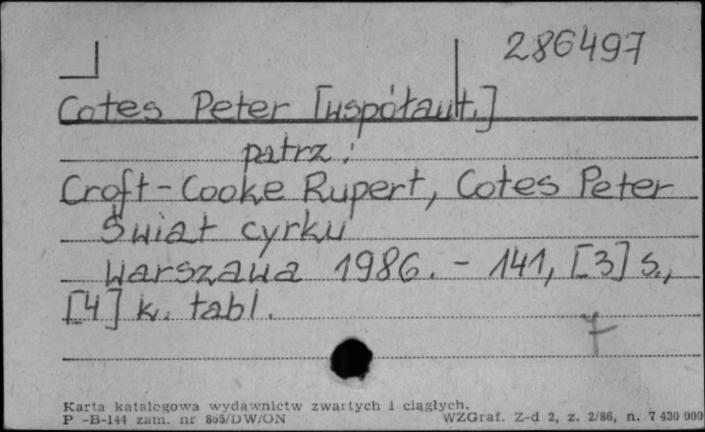 286497
Cotes Peter [współaut.]
patrz:
Croft-Cooke Rupert, Cotes Peter
Świat cyrku
Warszawa 1986. - 141, [3] s.,
[4] k. tabl.
7
Karta katalogowa wydawnictw zwartych i ciągłych.
P -B-144 zam. nr 865/DW/ON WZGraf. Z-d 2, z. 2/86, n. 7 430 000